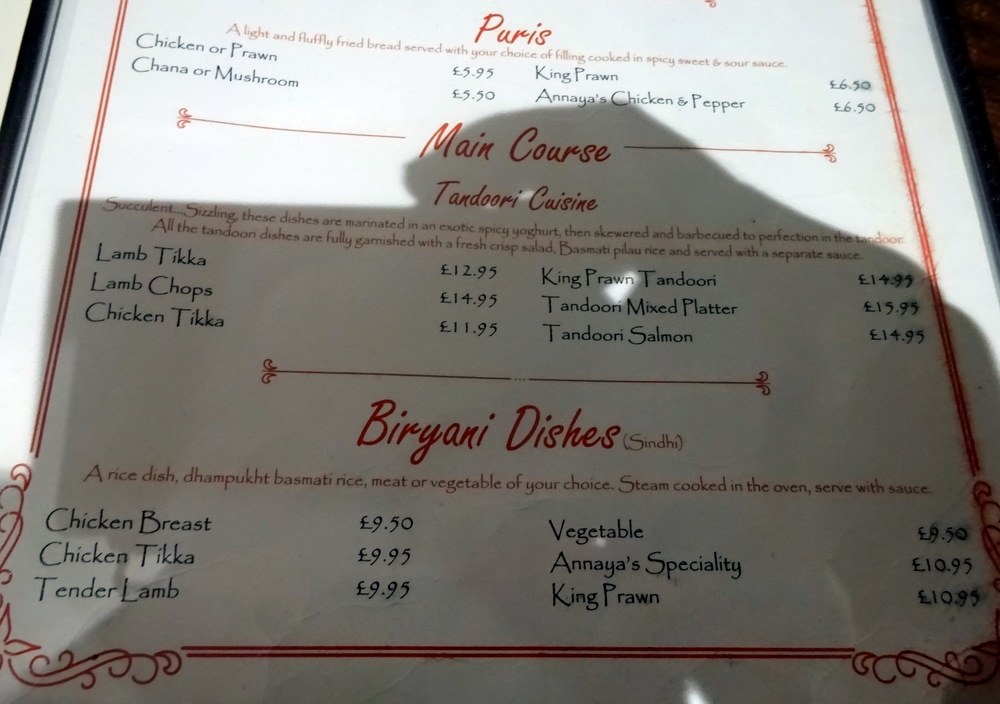 Puris
A light and fluffly fried bread served with your choice of filling cooked in spicy sweet & sour sauce.
Chicken or Prawn £5.95 King Prawn £6.50
Chana or Mushroom £5.50 Annaya's Chicken & Pepper £6.50
Main Course
Tandoori Cuisine
Succulent...Sizzling, these dishes are marinated in an exotic spicy yoghurt, then skewered and barbecued to perfection in the tandoor.
All the tandoori dishes are fully garnished with a fresh crisp salad, Basmati pilau rice and served with a separate sauce.
Lamb Tikka £12.95 King Prawn Tandoori £14.95
Lamb Chops £14.95 Tandoori Mixed Platter £15.95
Chicken Tikka £11.95 Tandoori Salmon £14.95
Biryani Dishes (Sindhi)
A rice dish, dhampukht basmati rice, meat or vegetable of your choice. Steam cooked in the oven, serve with sauce.
Chicken Breast £9.50 Vegetable £9.50
Chicken Tikka £9.95 Annaya's Speciality £10.95
Tender Lamb £9.95 King Prawn £10.95